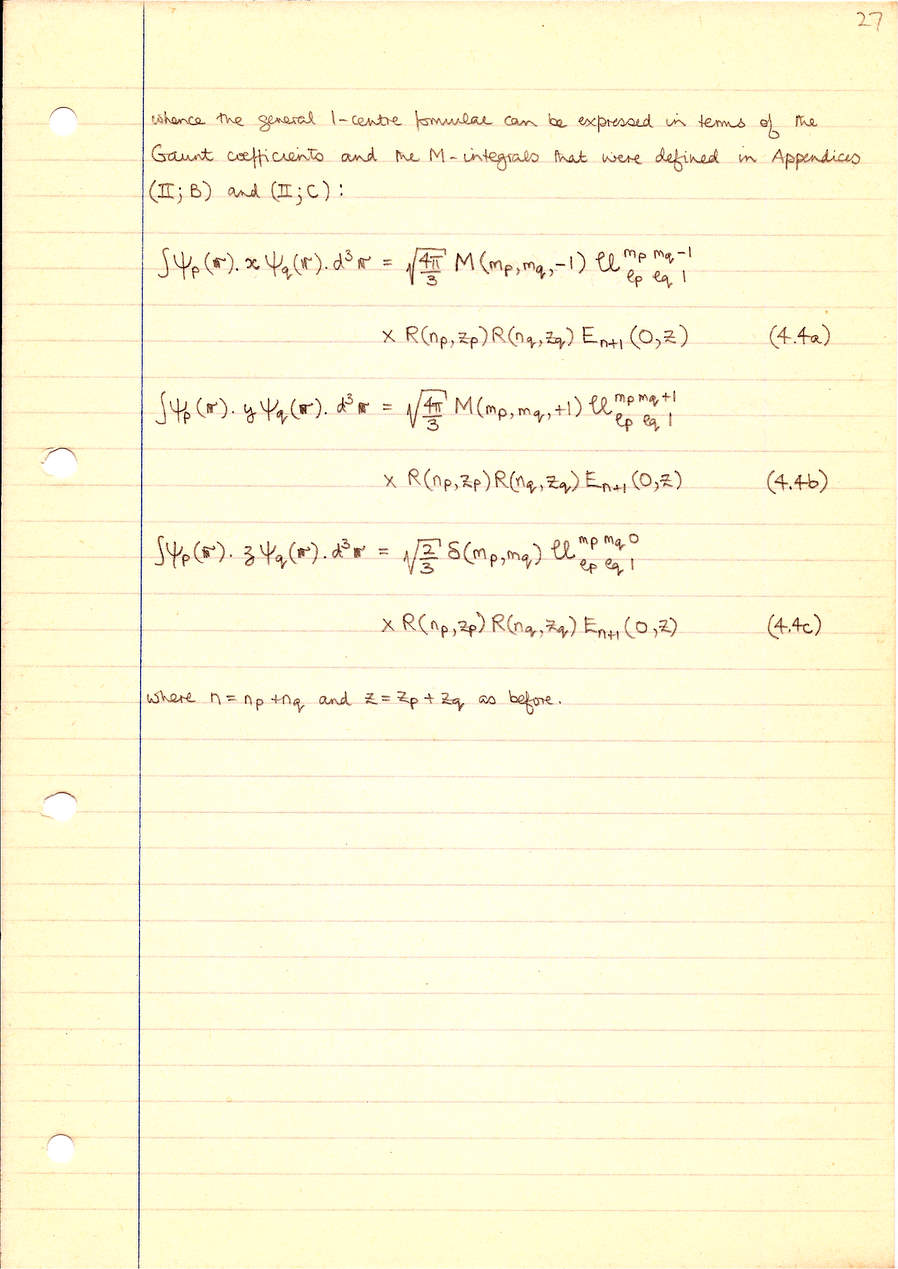 27
whence the general 1-centre formulae can be expressed in terms of the
Gaunt coefficients and the M-integrals that were defined in Appendices
(II; B) and (II; C):
∫ψₚ(𝕣). x ψ_q(𝕣). d³𝕣 = √(4π/3) M(mₚ, m_q, -1) 𝒰^{mₚ m_q -1}_{ℓₚ ℓ_q 1}
× R(nₚ, zₚ) R(n_q, z_q) E_{n+1}(0, z) (4.4a)
∫ψₚ(𝕣). y ψ_q(𝕣). d³𝕣 = √(4π/3) M(mₚ, m_q, +1) 𝒰^{mₚ m_q +1}_{ℓₚ ℓ_q 1}
× R(nₚ, zₚ) R(n_q, z_q) E_{n+1}(0, z) (4.4b)
∫ψₚ(𝕣). z ψ_q(𝕣). d³𝕣 = √(2/3) δ(mₚ, m_q) 𝒰^{mₚ m_q 0}_{ℓₚ ℓ_q 1}
× R(nₚ, zₚ) R(n_q, z_q) E_{n+1}(0, z) (4.4c)
where n = nₚ + n_q and z = zₚ + z_q as before.